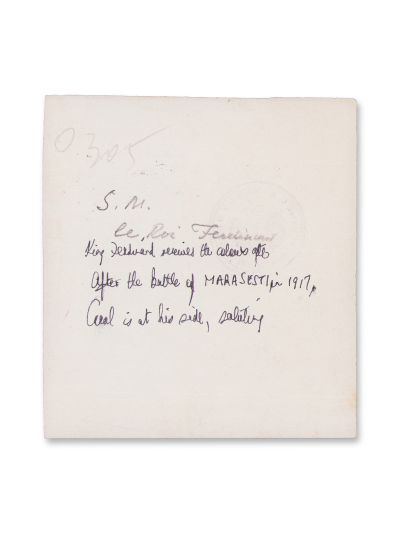 0.305
S. M.
le Roi Ferdinand
King Ferdinand reviews the colours
After the battle of MARASESTI, in 1917,
Carol is at his side, saluting